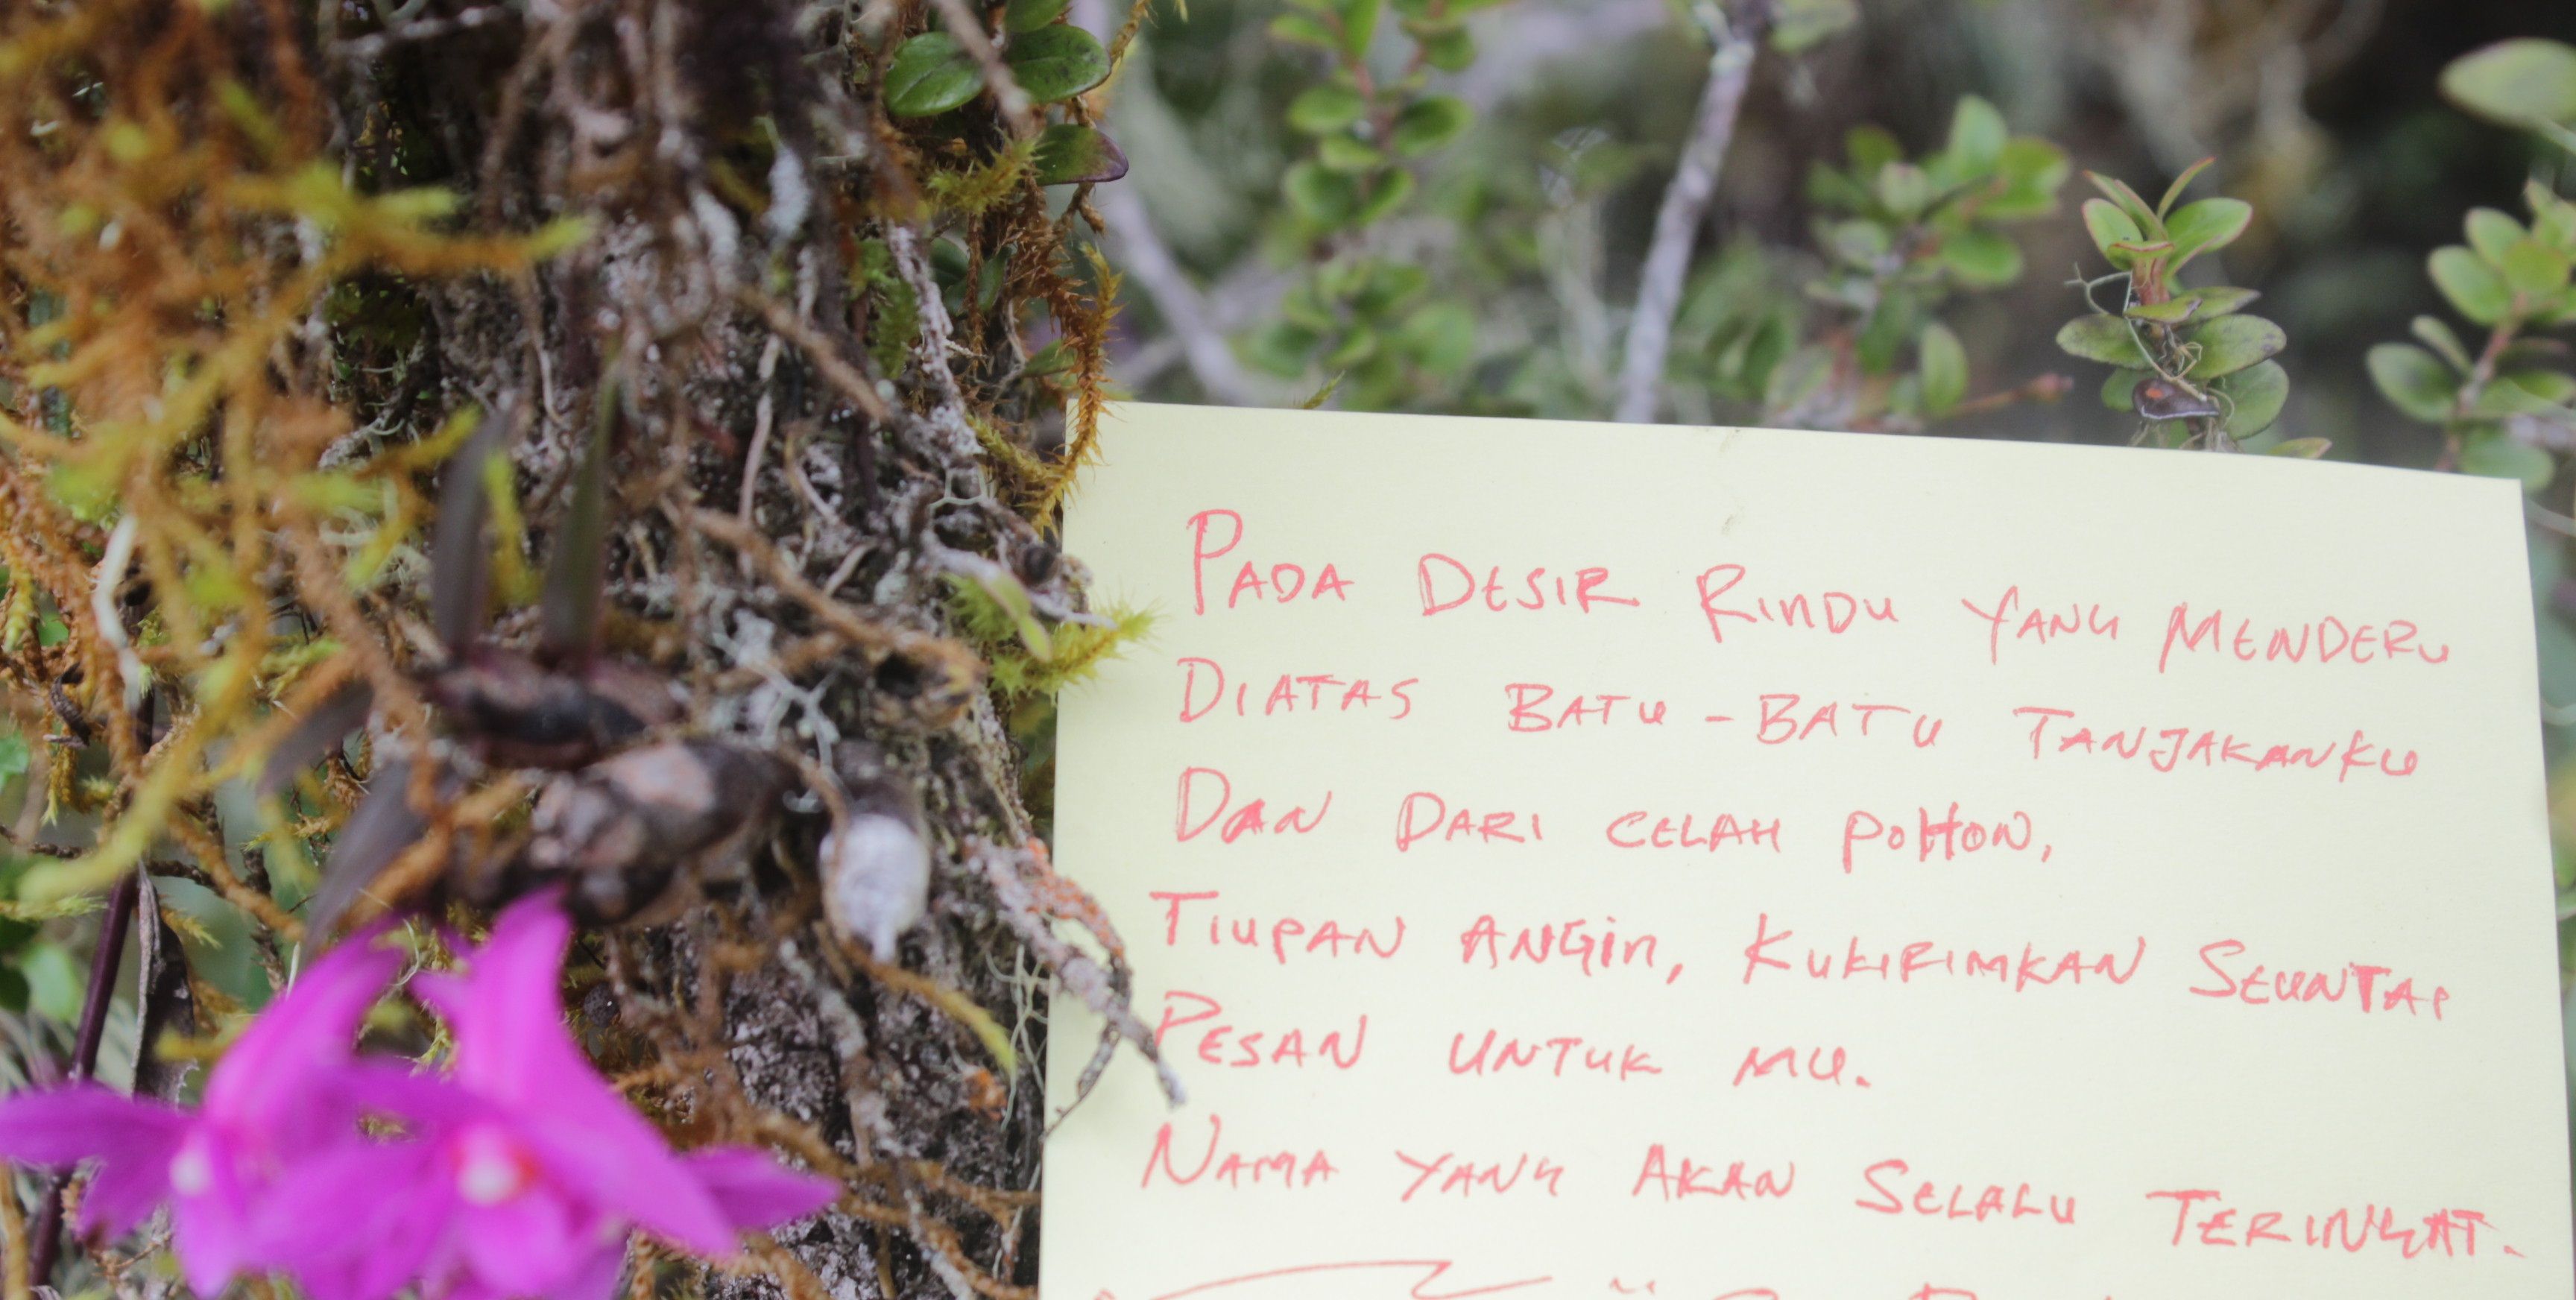 PADA DESIR RINDU YANG MENDERU
DIATAS BATU-BATU TANJAKANKU
DAN DARI CELAH POHON,
TIUPAN ANGIN, KUKIRIMKAN SEUNTAI
PESAN UNTUK MU.
NAMA YANG AKAN SELALU TERINGAT.